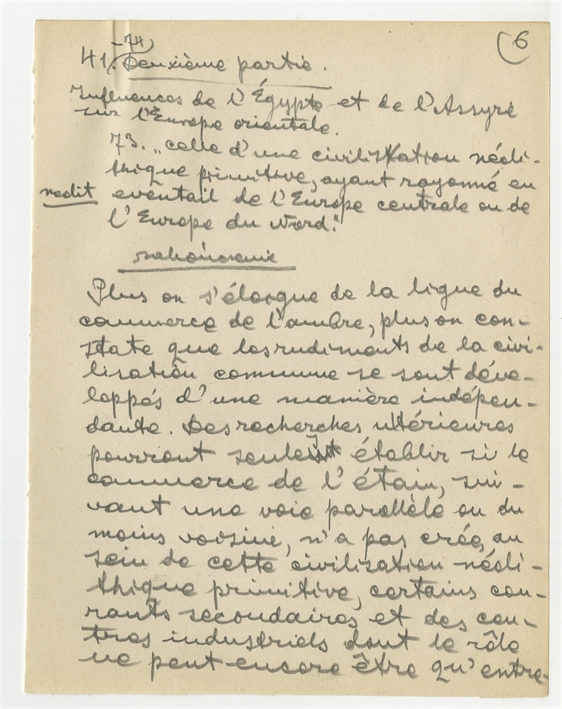 (6
-74)
41. Deuxième partie.
Influences de l'Égypte et de l'Assyrie
sur l'Europe orientale.
73. „celle d'une civilisation néoli-
thique primitive, ayant rayonné en
éventail de l'Europe centrale ou de
l'Europe du Nord."
Plus on s'éloigne de la ligne du
commerce de l'ambre, plus on con-
state que les rudiments de la civi-
lisation commune se sont déve-
loppés d'une manière indépen-
dante. Des recherches ultérieures
pourront seules établir si le
commerce de l'étain, sui-
vant une voie parallèle ou du
moins voisine, n'a pas créé, au
sein de cette civilisation néoli-
thique primitive, certains cou-
rants secondaires et des cen-
tres industriels dont le rôle
ne peut encore être qu'entre-